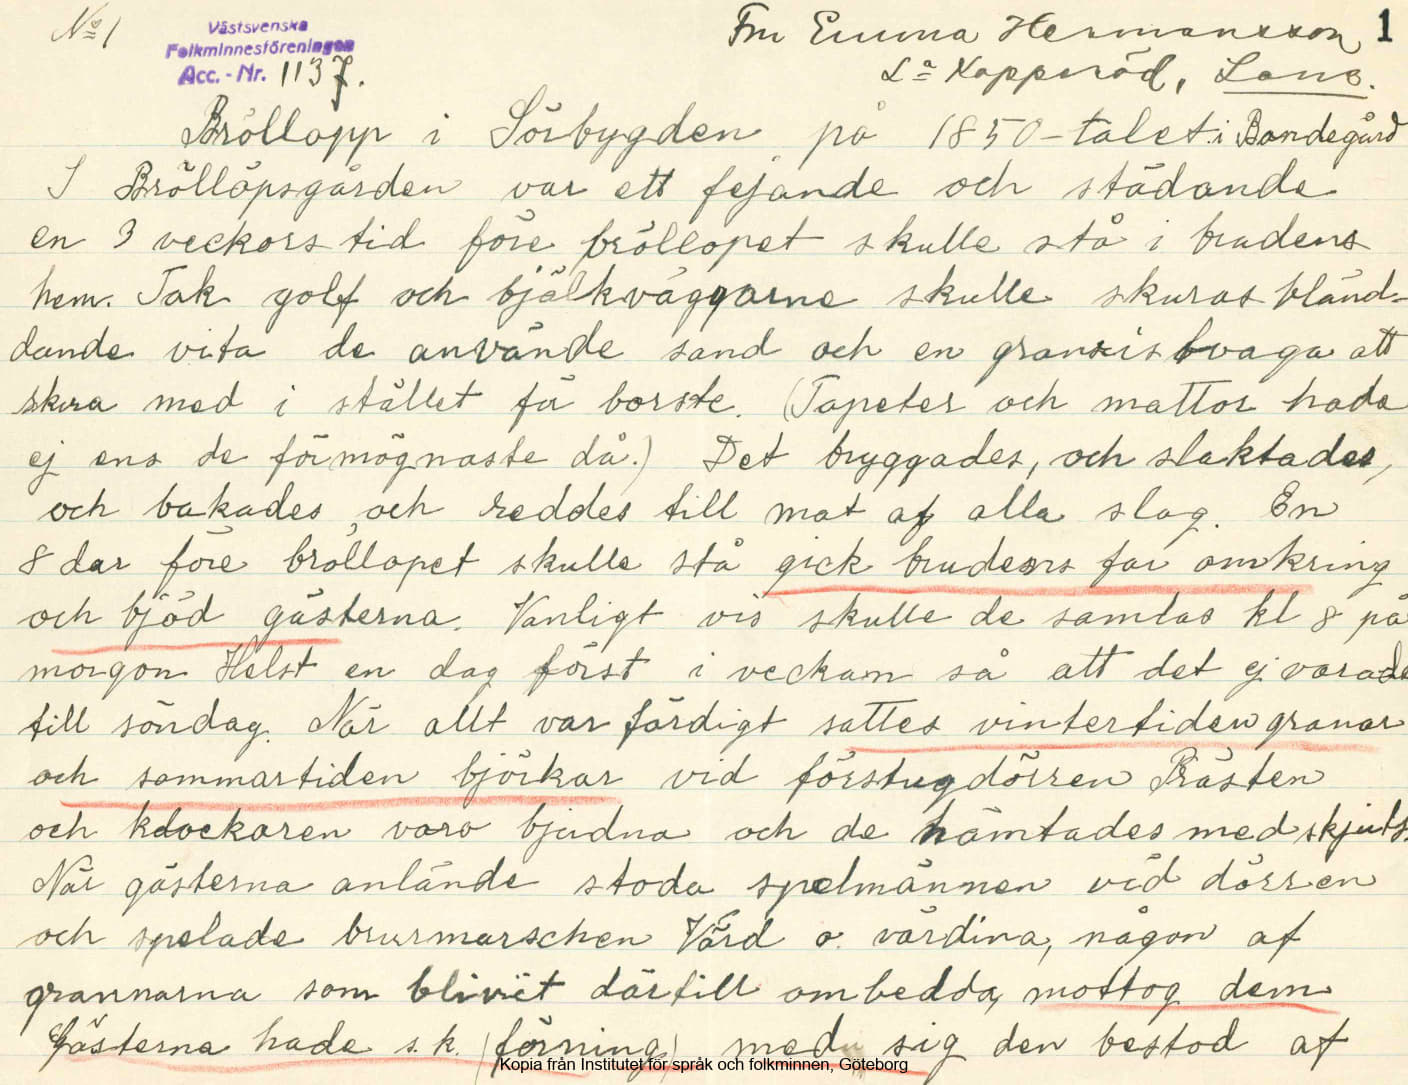 No 1
Västsvenska
Folkminnesföreningen
Acc.-Nr. 1137.
Fru Emma Hermansson 1
La Kopperöd, Lane.
Bröllopp i Sörbygden på 1850-talet i Bondegård
I Bröllöpsgården var ett fejande och städande
en 3 veckors tid före bröllopet skulle stå i brudens
hem. Tak golf och bjälkväggarne skulle skuras bländ-
dande vita de använde sand och en granrisvaga att
skura med i stället för borste. (Tapeter och mattor hade
ej ens de förmögnaste då.) Det bryggades, och slaktades,
och bakades, och reddes till mat af alla slag. En
8 dar före bröllopet skulle stå gick brudens far omkring
och bjöd gästerna. Vanligt vis skulle de samlas kl 8 på
morgon Helst en dag först i veckan så att det ej varade
till söndag. När allt var färdigt sattes vintertiden granar
och sommartiden björkar vid förstugdörren Prästen
och klockaren voro bjudna och de hämtades med skjuts.
När gästerna anlände stoda spelmännen vid dörren
och spelade brurmarschen Värd o. värdina, någon af
grannarna som blivit därtill ombedda, mottog dem
Gästerna hade s.k. (förning) med sig den bestod af
Kopia från Institutet för språk och folkminnen, Göteborg